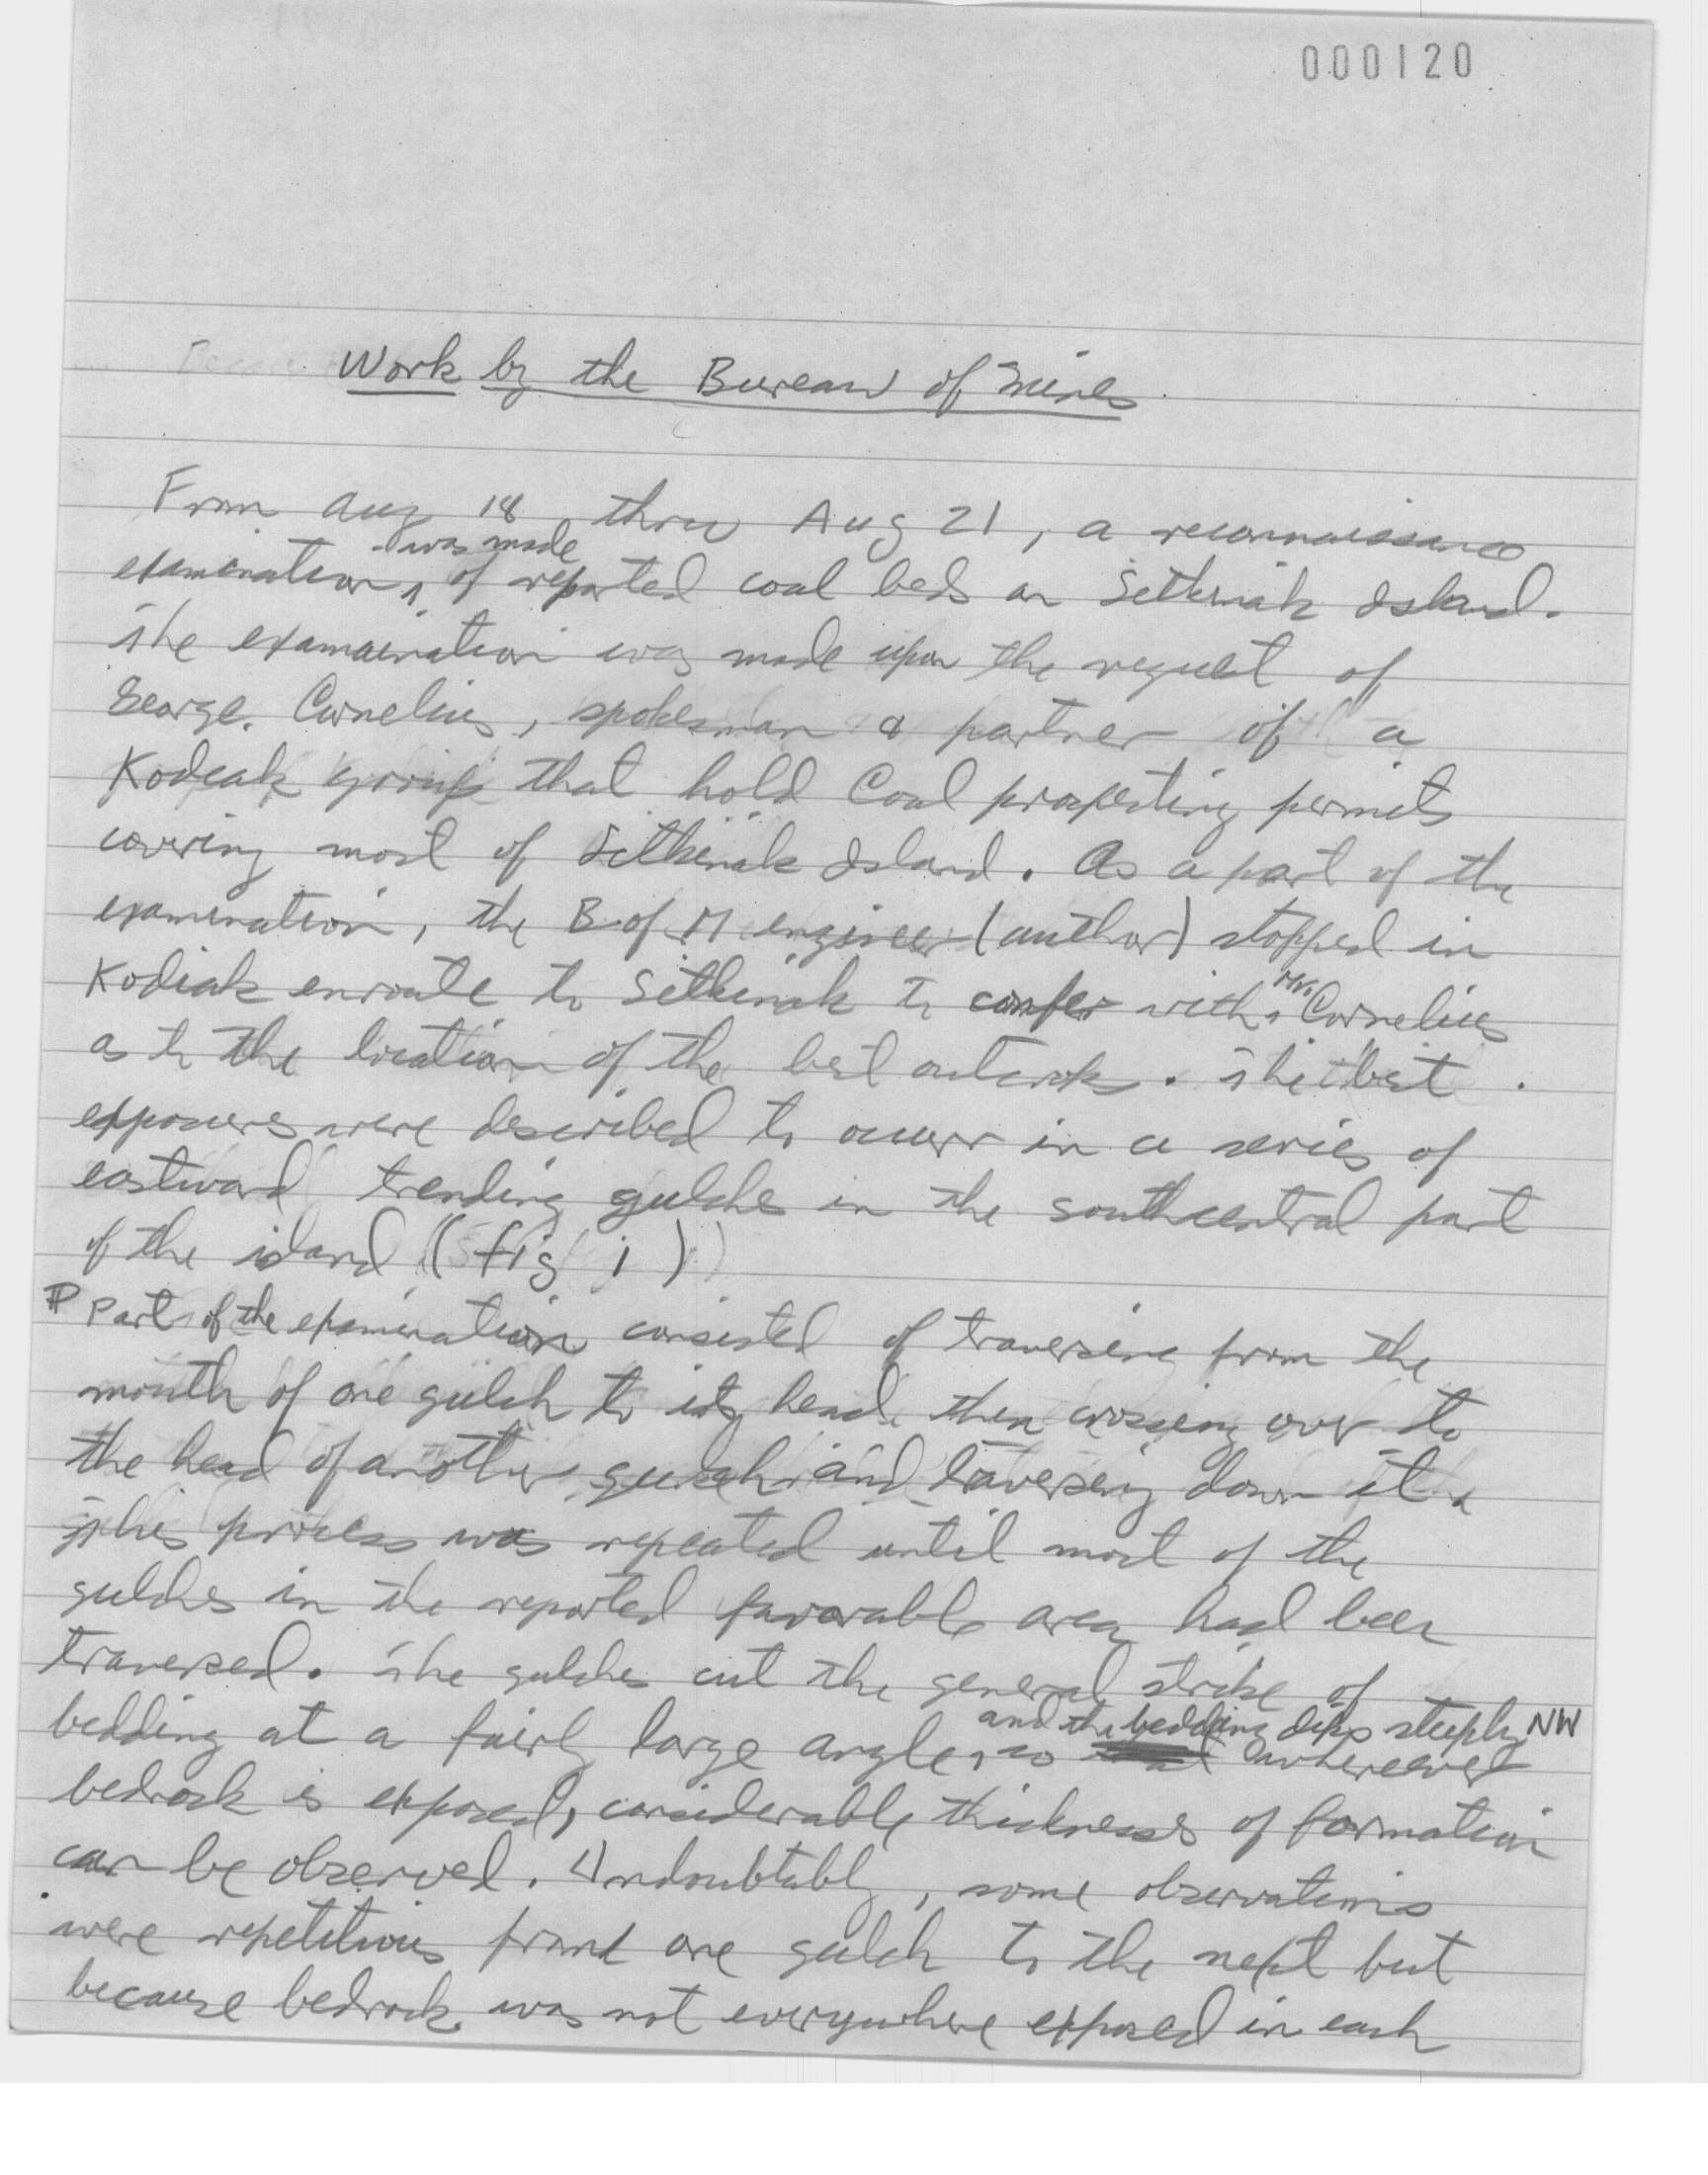 000120
Work by the Bureau of Mines
From Aug 18 thru Aug 21, a reconnaissance
was made
examination, of reported coal beds on Sitkinak Island.
The examaination was made upon the request of
George. Cornelius, spokesman & partner of a
Kodiak group that hold Coal prospecting permits
covering most of Sitkinak Island. As a part of the
examination, the B of M engineer (author) stopped in
Mr.
Kodiak enroute to Sitkinak to confer with Cornelius
as to the location of the best outcrops. The best
exposures were described to occurr in a series of
eastward trending gulches in the southcentral part
of the island (fig 1)
Part of the examination consisted of traversing from the
mouth of one gulch to its head then crossing over to
the head of another gulch and traversing down it.
This process was repeated until most of the
gulches in the reported favorable area had been
traversed. The gulches cut the general strike of
and the bedding dips steeply NW
bedding at a fairly large angle, so whereever
bedrock is exposed, considerable thicknesses of formation
can be observed. Undoubtably, some observations
were repetitious from one gulch to the next but
because bedrock was not everywhere exposed in each